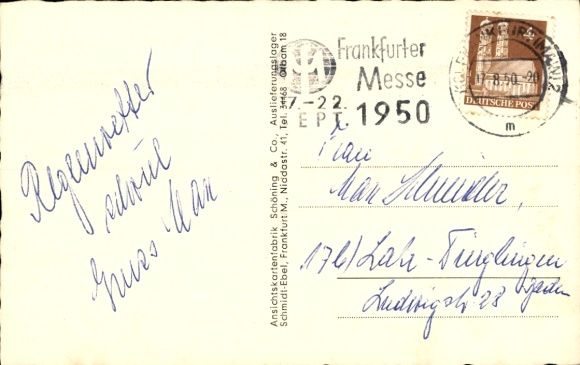 Regenwetter
schöne
Gruss Max
Ansichtskartenfabrik Schöning & Co., Auslieferungslager
Schmidt-Ebel, Frankfurt M., Niddastr. 41, Tel. 31168 Offbam 18
Frankfurter
Messe
17.-22.
SEPT. 1950
FRANKFURT (MAIN) 2
17.8.50.-20
m
DEUTSCHE POST
Frau
Max Schneider,
17b) Lahr-Dinglingen
Ludwigstr 28 Baden